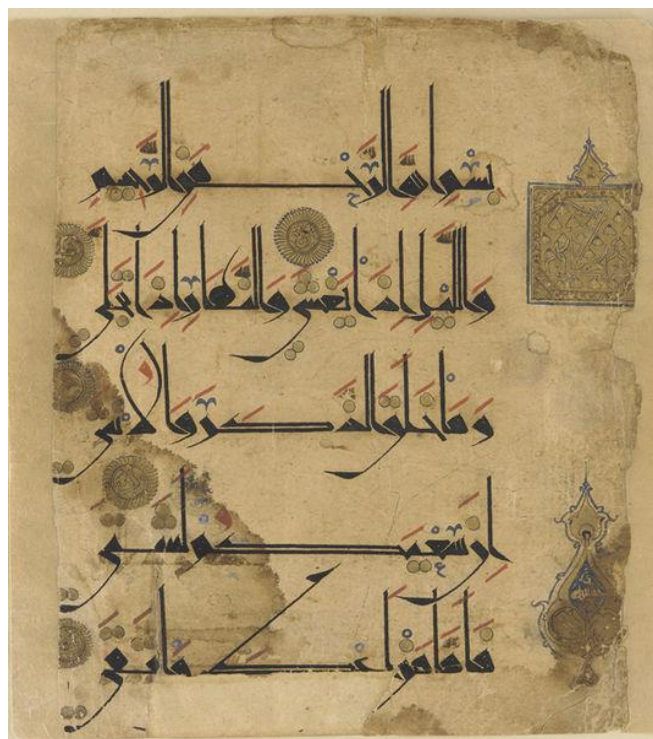 بِسْمِ اللَّهِ الرَّحْمَٰنِ الرَّحِيمِ
وَاللَّيْلِ إِذَا يَغْشَىٰ وَالنَّهَارِ إِذَا تَجَلَّىٰ
وَمَا خَلَقَ الذَّكَرَ وَالْأُنثَىٰ
إِنَّ سَعْيَكُمْ لَشَتَّىٰ
فَأَمَّا مَنْ أَعْطَىٰ وَاتَّقَىٰ